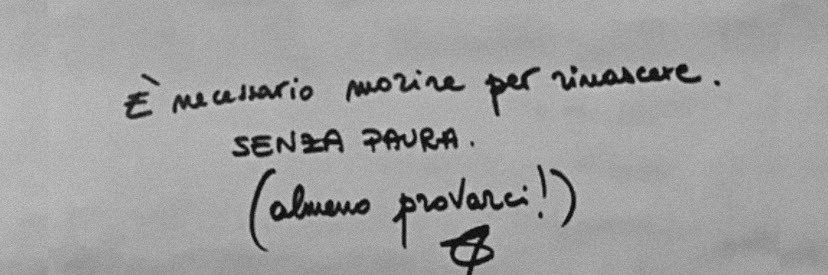 È necessario morire per rinascere.
SENZA PAURA.
(almeno provarci!)